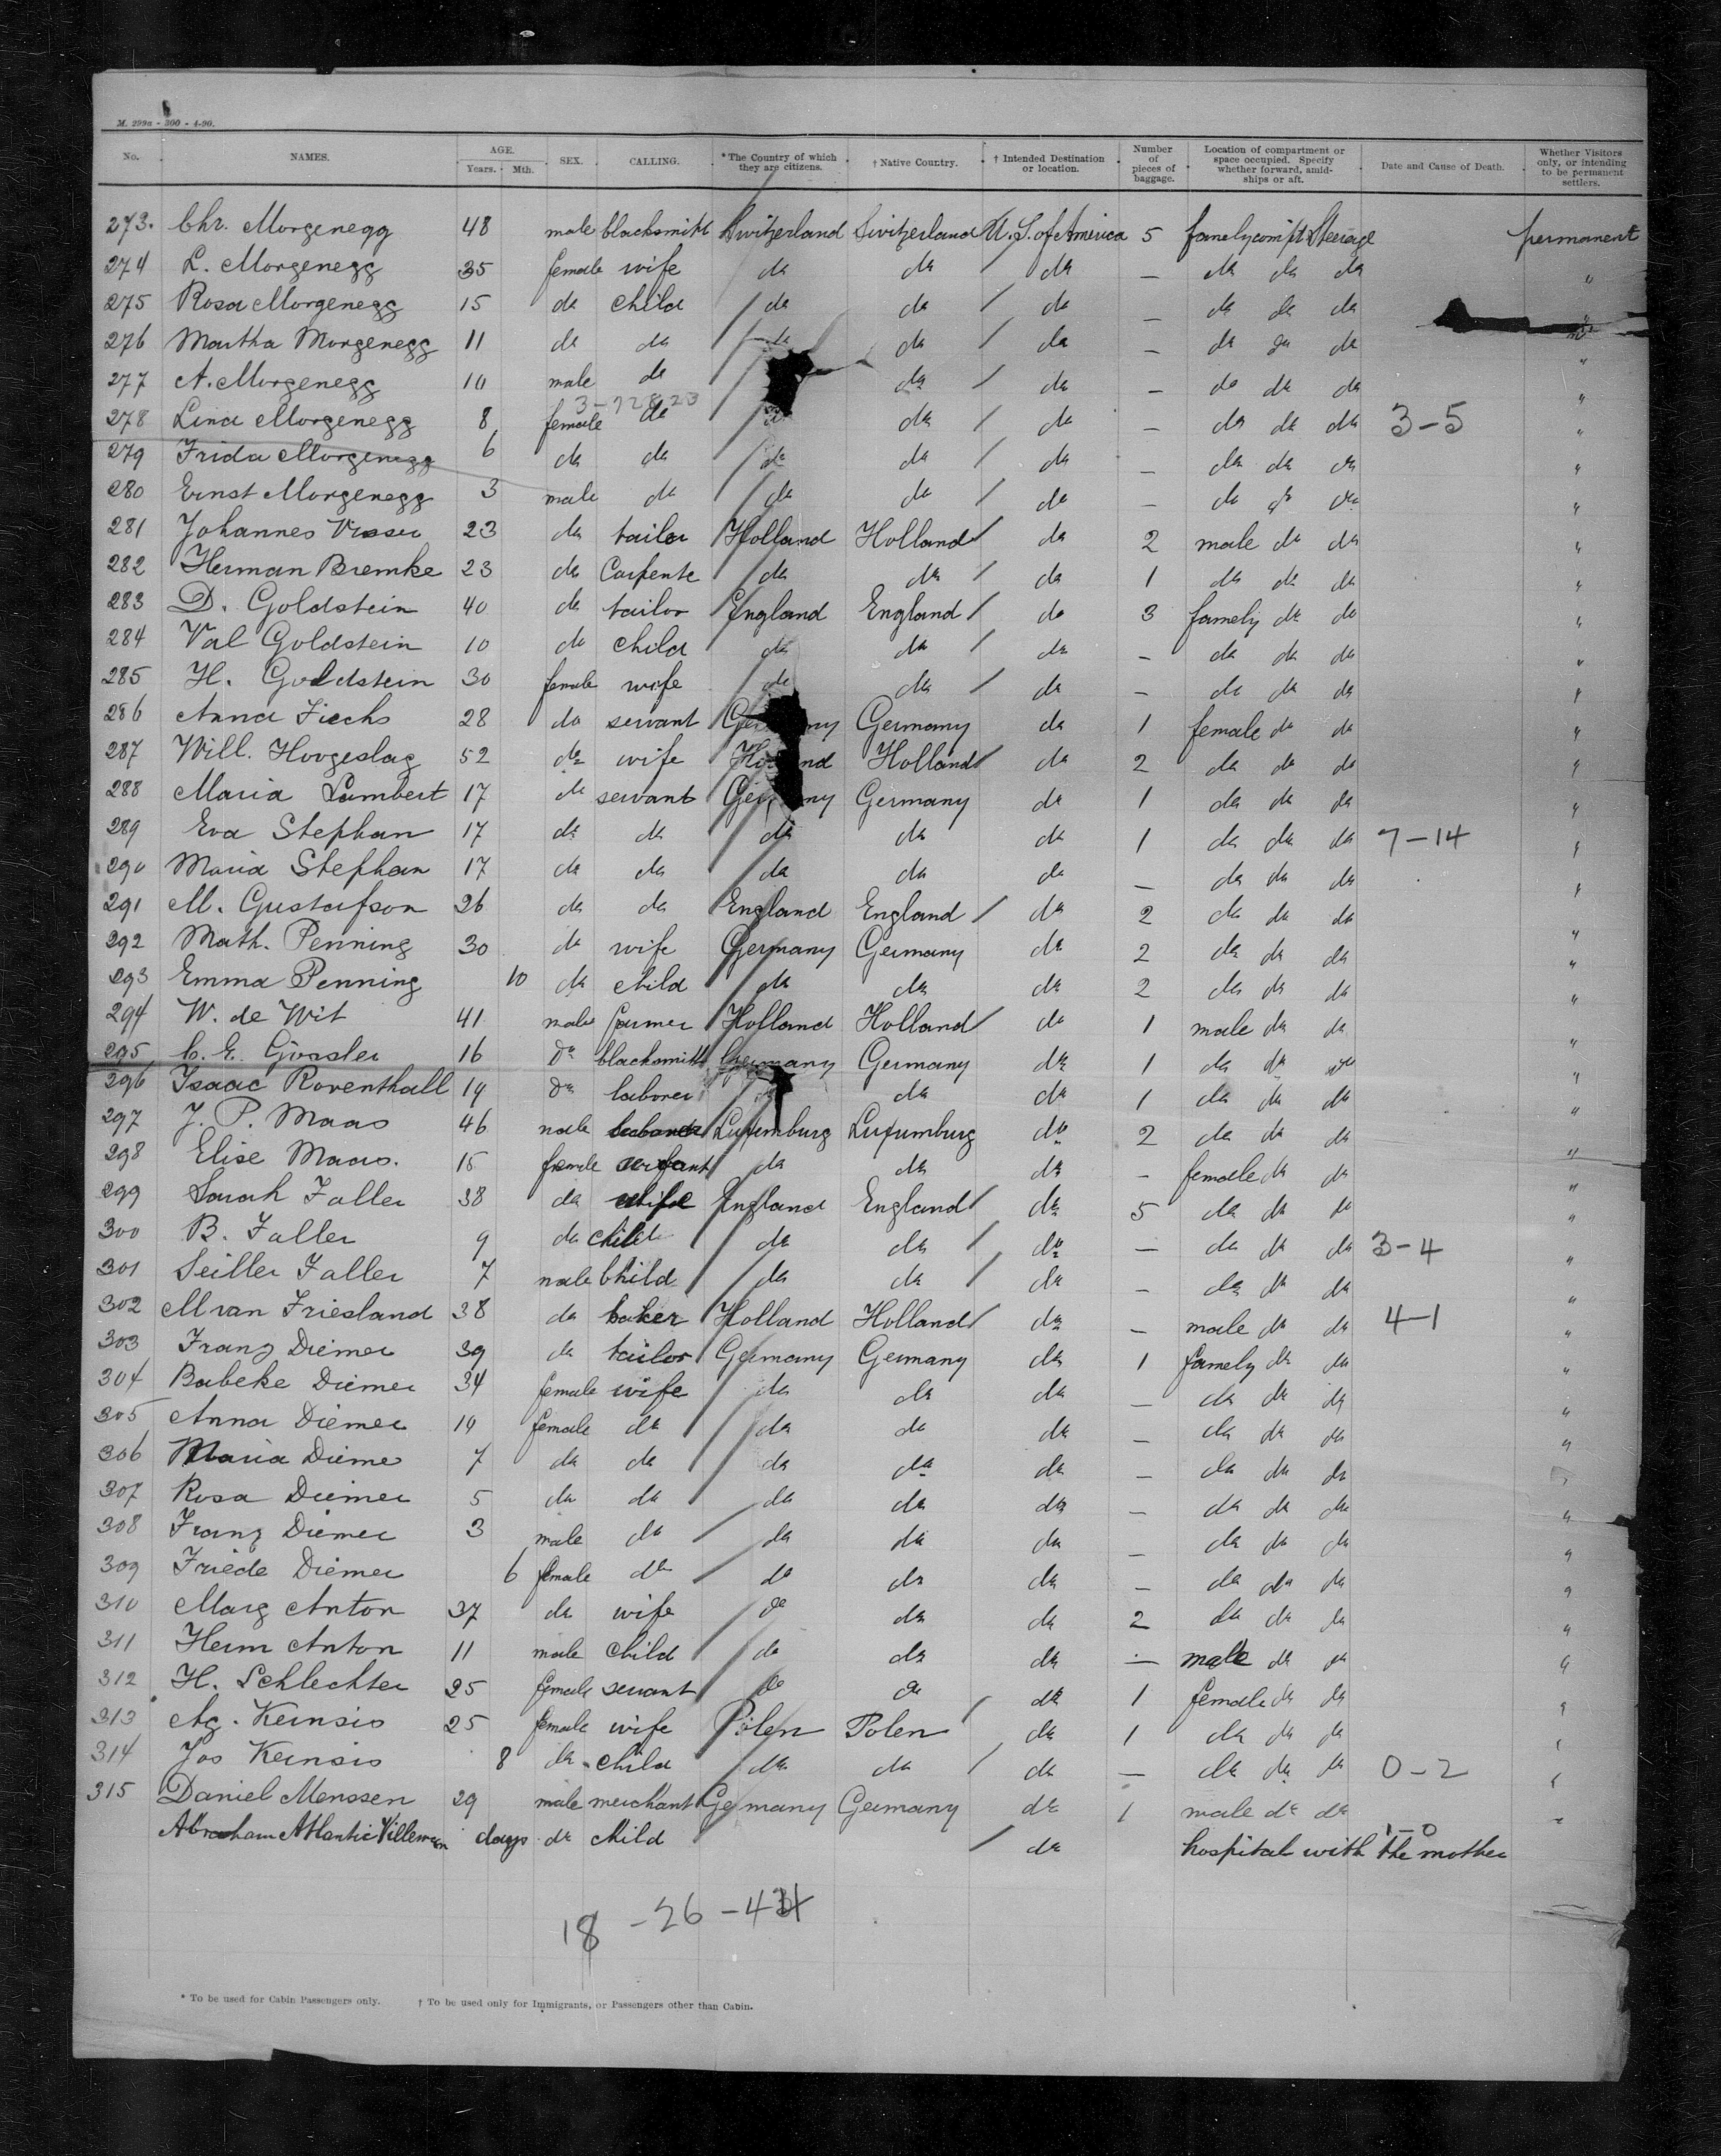 M. 299a - 300 - 4-90.
No. NAMES. AGE. Years. Mth. SEX. CALLING. *The Country of which they are citizens. † Native Country. † Intended Destination or location. Number of pieces of baggage. Location of compartment or space occupied. Specify whether forward, amidships or aft. Date and Cause of Death. Whether Visitors only, or intending to be permanent settlers.
273. Chr. Morgenegg 48 male blacksmith Switzerland Switzerland U. S. of America 5 famely comp't Steerage permanent
274 L. Morgenegg 35 female wife do do do — do do do "
275 Rosa Morgenegg 15 do child do do do — do do do "
276 Martha Morgenegg 11 do do do do do — do do do "
277 A. Morgenegg 10 male do do do — do do do "
278 Lina Morgenegg 8 female do do do do — do do do 3-5 "
279 Frida Morgenegg 6 do do do do do — do do do "
280 Ernst Morgenegg 3 male do do do do — do do do "
281 Johannes Visser 23 do tailor Holland Holland do 2 male do do "
282 Herman Bremke 23 do Carpente do do do 1 do do do "
283 D. Goldstein 40 do tailor England England do 3 famely do do "
284 Val Goldstein 10 do child do do do — do do do "
285 H. Goldstein 30 female wife do do do — do do do "
286 Anna Fiechs 28 do servant Germany Germany do 1 female do do "
287 Will. Hoogeslag 52 do wife Holland Holland do 2 do do do "
288 Maria Lambert 17 do servant Germany Germany do 1 do do do "
289 Eva Stephan 17 do do do do do 1 do do do 7-14 "
290 Maria Stephan 17 do do do do do — do do do "
291 M. Gustafson 26 do do England England do 2 do do do "
292 Math. Penning 30 do wife Germany Germany do 2 do do do "
293 Emma Penning 10 do child do do do 2 do do do "
294 W. de Wit 41 male farmer Holland Holland do 1 male do do "
295 C. E. Gorsler 16 do blacksmith Germany Germany do 1 do do do "
296 Isaac Roventhall 19 do laborer do do do 1 do do do "
297 J. P. Maas 46 male Luxumburg Luxumburg do 2 do do do "
298 Elise Maas. 15 female servant do do do - female do do "
299 Sarah Faller 38 do wife England England do 5 do do do "
300 B. Faller 9 do child do do do — do do do 3-4 "
301 Seiller Faller 7 male Child do do do - do do do "
302 M van Friesland 38 do baker Holland Holland do — male do do 4-1 "
303 Franz Diemer 39 do tailor Germany Germany do 1 famely do do "
304 Babeke Diemer 34 female wife do do do — do do do "
305 Anna Diemer 19 female do do do do — do do do "
306 Maria Dieme 7 do do do do do — do do do
307 Rosa Diemer 5 do do do do do — do do do "
308 Franz Diemer 3 male do do do do — do do do "
309 Friede Diemer 6 female do do do do — do do do "
310 Marg Anton 37 do wife do do do 2 do do do "
311 Herm Anton 11 male child do do do — male do do "
312 H. Schlechter 25 female servant do do do 1 female do do "
313 Ag. Kernsis 25 female wife Polen Polen do 1 do do do "
314 Jos Kernsis 8 do child do do do — do do do 0-2 "
315 Daniel Menssen 29 male merchant Germany Germany do 1 male do do "
Abraham Atlantic days do child do hospital with the mother 1-0
18 - 26 -
* To be used for Cabin Passengers only. † To be used only for Immigrants, or Passengers other than Cabin.